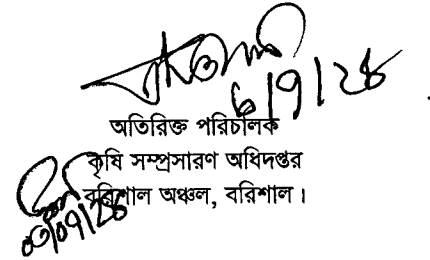 ৬/৭/২৪
অতিরিক্ত পরিচালক
কৃষি সম্প্রসারণ অধিদপ্তর
বরিশাল অঞ্চল, বরিশাল।